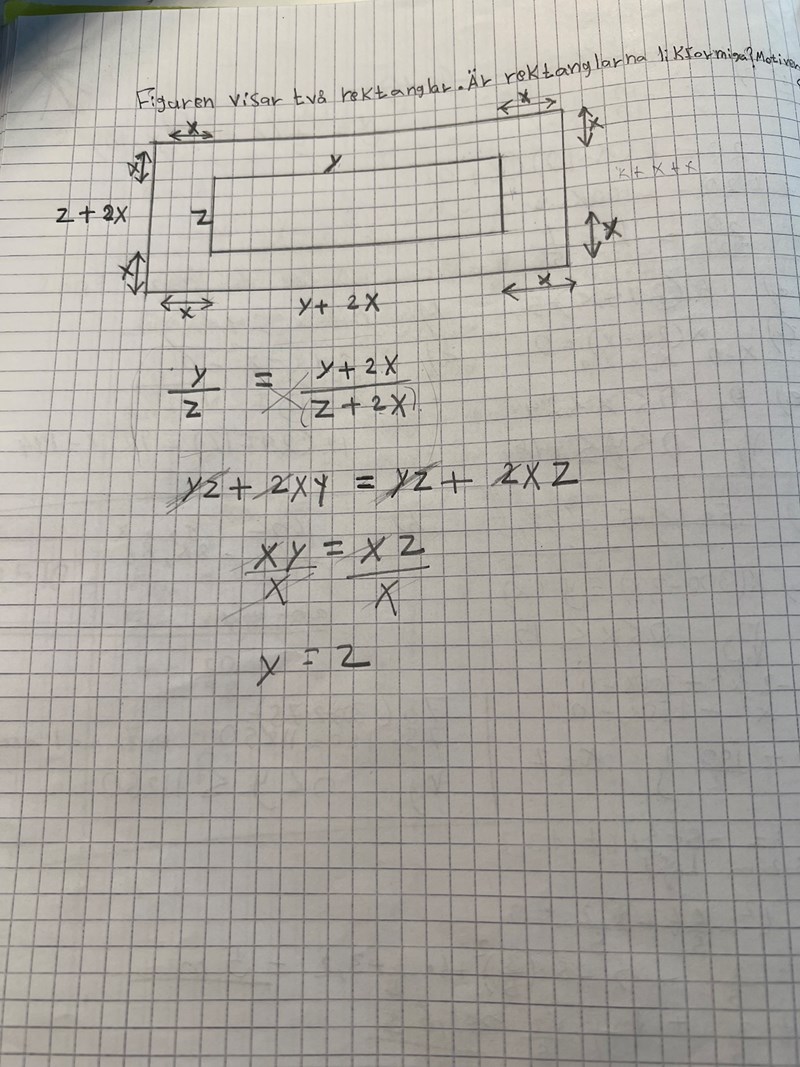 Figuren visar två rektanglar. Är rektanglarna likformiga? Motivera
x x
x y x
z + 2x z x + x + x
x x
x y + 2x x
y/z = y + 2x/(z + 2x)
yz + 2xy = yz + 2xz
xy/x = xz/x
y = z